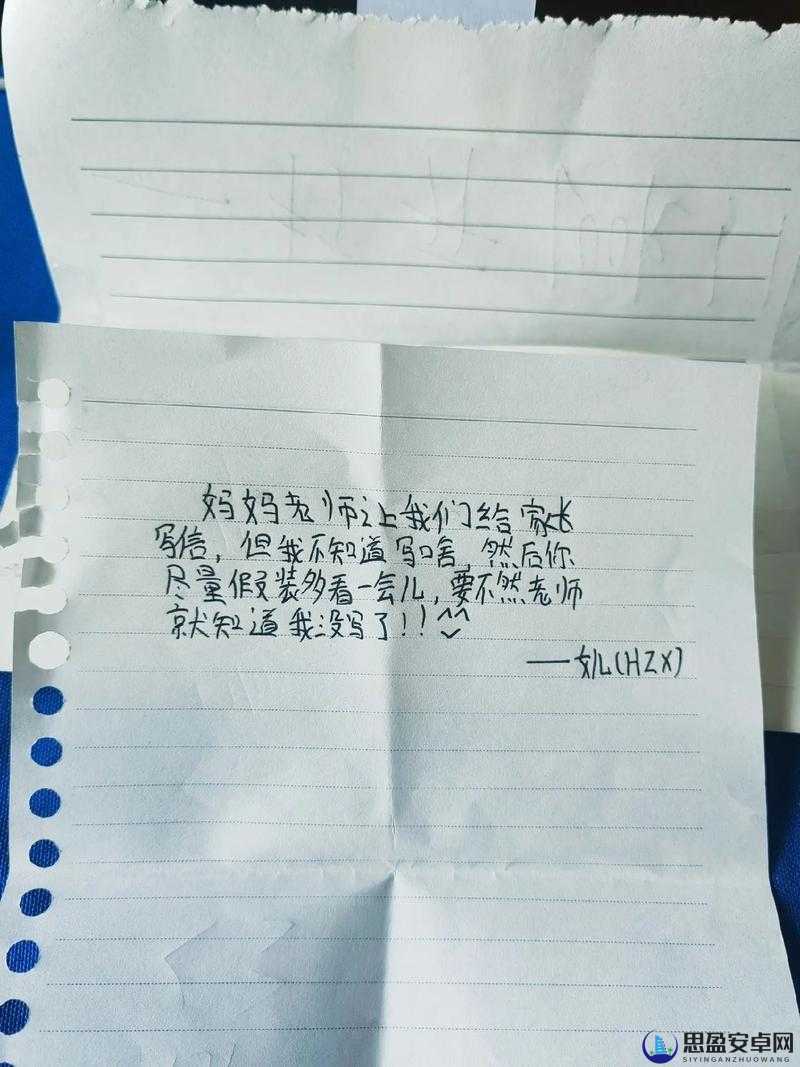 妈妈老师让我们给家长
写信，但我不知道写啥，然后你
尽量假装多看一会儿，要不然老师
就知道我没写了！！^^
——女儿(HZX)
思盈安卓网
SIYINGANZHUOWANG